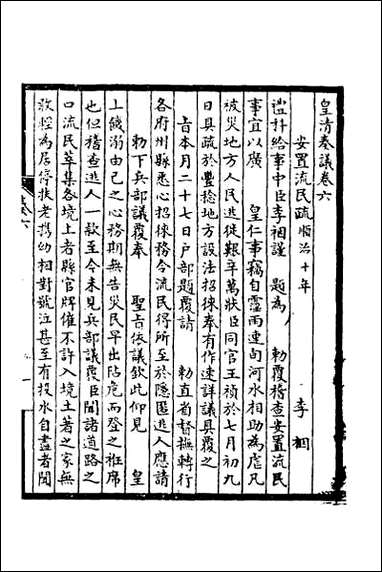 皇清奏議卷六
安置流民疏順治十年
李裀
禮科給事中臣李裀謹 題為 勅覆稽查安置流民
事宜以廣 皇仁事竊自霪雨連旬河水相助為虐凡
被災地方人民逃徙艱辛萬狀臣同官王楨於七月初九
日具疏於豐稔地方設法招徠奉有作速詳議具覆之
旨本月二十七日户部題覆請 勅直省督撫轉行
各府州縣悉心招徠務今流民得所至於隱匿逃人應請
勅下兵部議覆奉 聖旨依議欽此仰見 皇
上饑溺由己之心務期無告災民早出阽危而登之袵席
也但稽查逃人一款至今未見兵部議覆臣聞諸道路之
口流民萃集各境土者縣官牌催不許入境土著之家無
敢輕為居停扶老携幼相對號泣甚至有投水自盡者聞